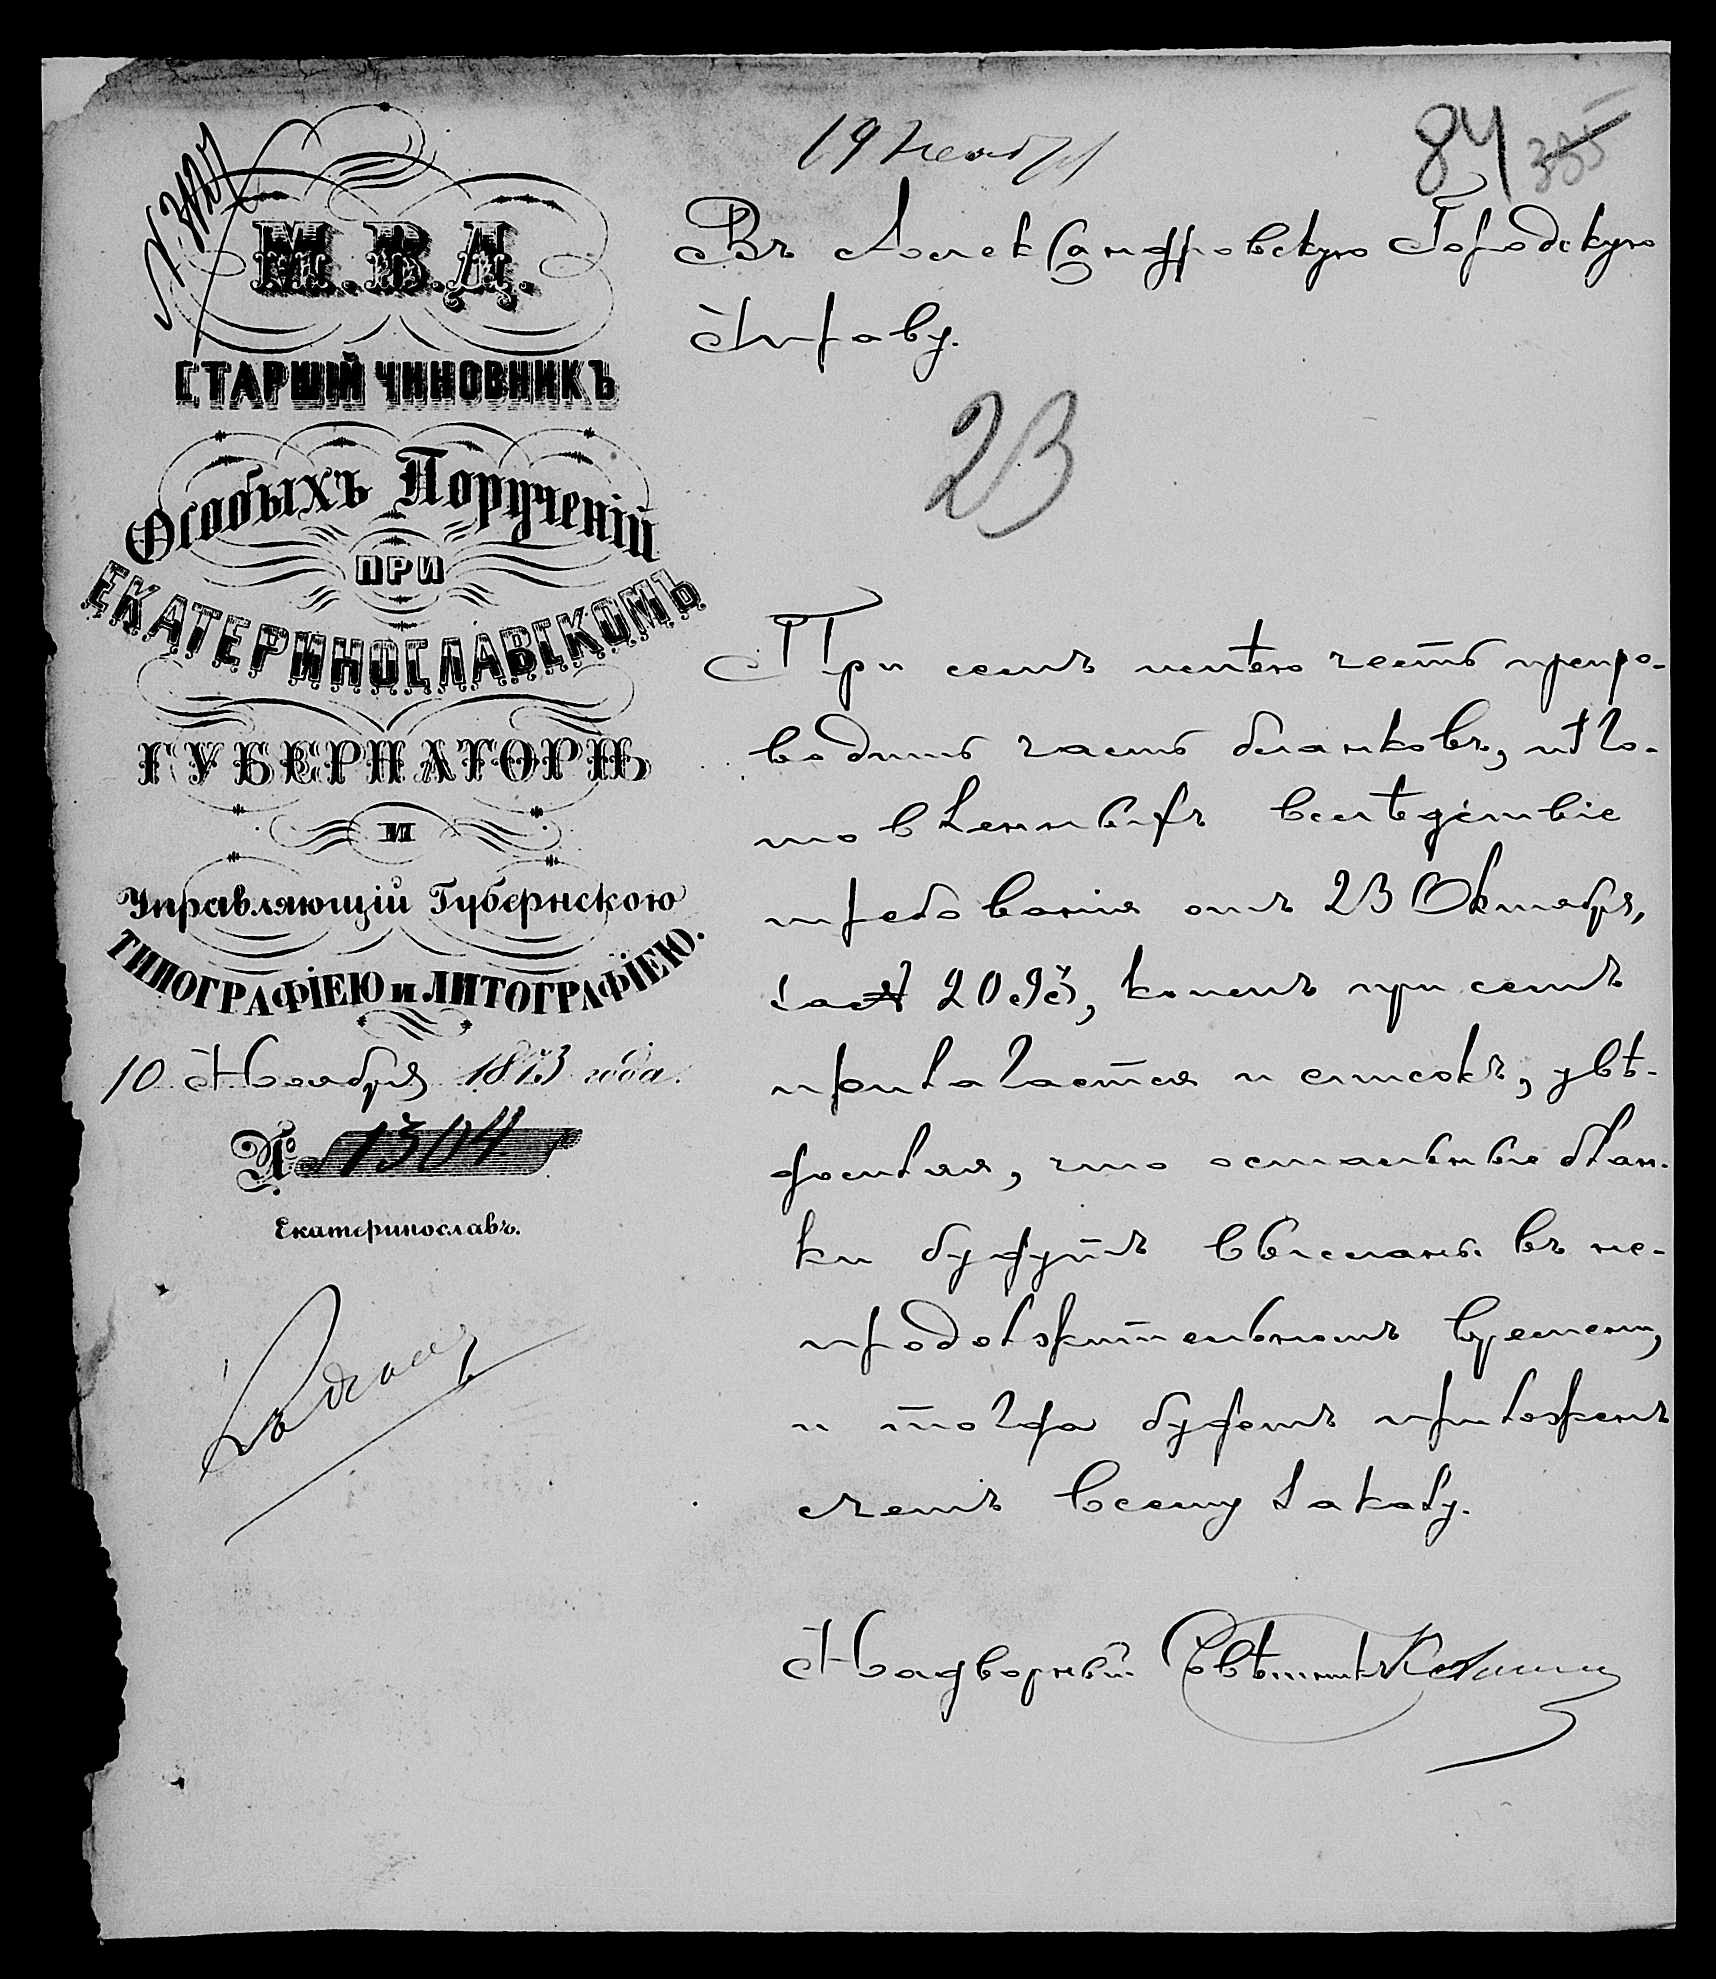 19 Ноября
84 335
№ 3207
М.В.Д.
СТАРШІЙ ЧИНОВНИКЪ
Особыхъ Порученій
ПРИ
ЕКАТЕРИНОСЛАВСКОМЪ
ГУБЕРНАТОРѢ
И
Управляющій Губернскою
ТИПОГРАФІЕЮ и ЛИТОГРАФІЕЮ.
10 Ноября 1873 года.
№ 1304
Екатеринославъ.
Въ Александровскую Городскую
Управу.
23
При семъ имѣю честь препро-
водить часть бланковъ, изго-
товленныхъ вслѣдствіе
требованія отъ 23 Октября,
за № 2093, коимъ при семъ
прилагается и списокъ, увѣ-
домляя, что остальные блан-
ки будутъ высланы въ не-
продолжительномъ времени,
и тогда будетъ приложенъ
счетъ всему заказу.
Надворный Совѣтникъ